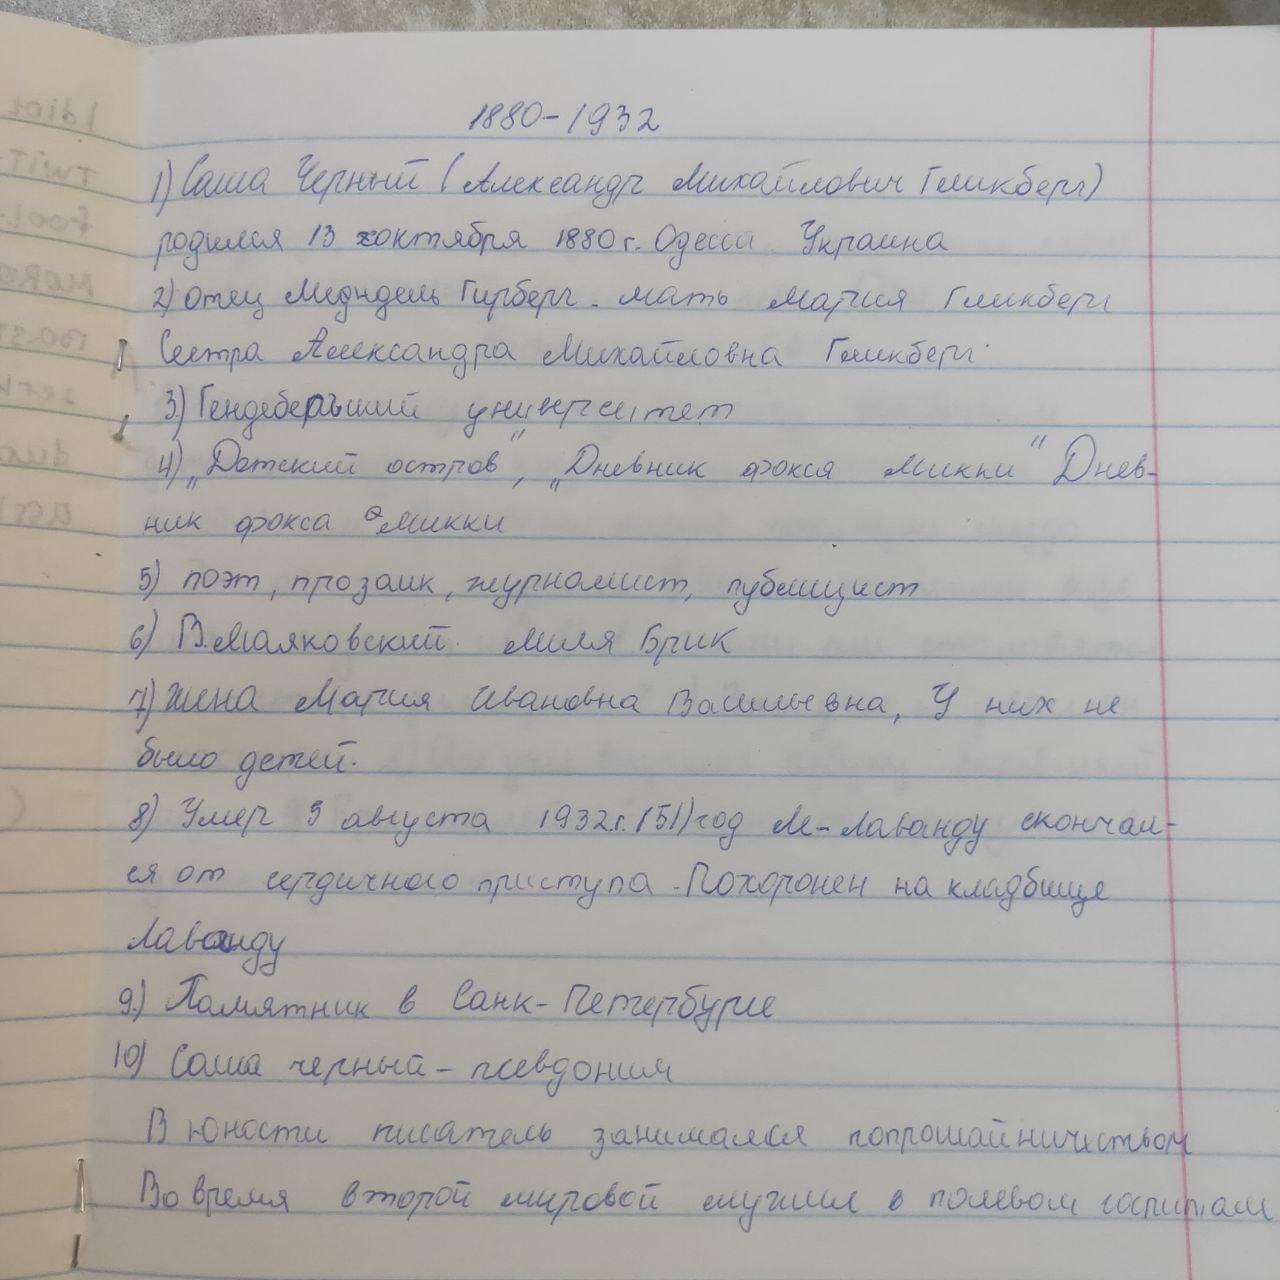 1880-1932
1) Саша Черный (Александр Михайлович Гликберг)
родился 13 октября 1880г. Одесса Украина
2) отец Мендель Гирберг. мать Мария Гликберг
Сестра Александра Михайловна Гликберг
3.) Гендебергъший университет
4) „Детский остров", „Дневник фокся Микки" Днев-
ник фокса Микки
5) поэт, прозаик, журналист, публицист
6) В.Маяковский. Лиля Брик
7) жена Мария Ивановна Васильевна, У них не
было детей.
8) Умер 5 августа 1932г. (51) год Ле-Лаванду скончал-
ся от сердичного приступа. Похоронен на кладбище
Лаванду
9.) Памятник в Санк-Петербурге
10) Саша черный - псевдоним
В юности писатель занимался попрошайничиством
Во время второй мировой служил в полевом госпитале
Idiot
TWIT-
fool-
ass